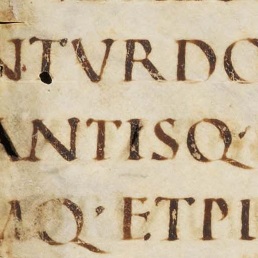 NTVRDO
ANTISQ'
AQ'ETPI